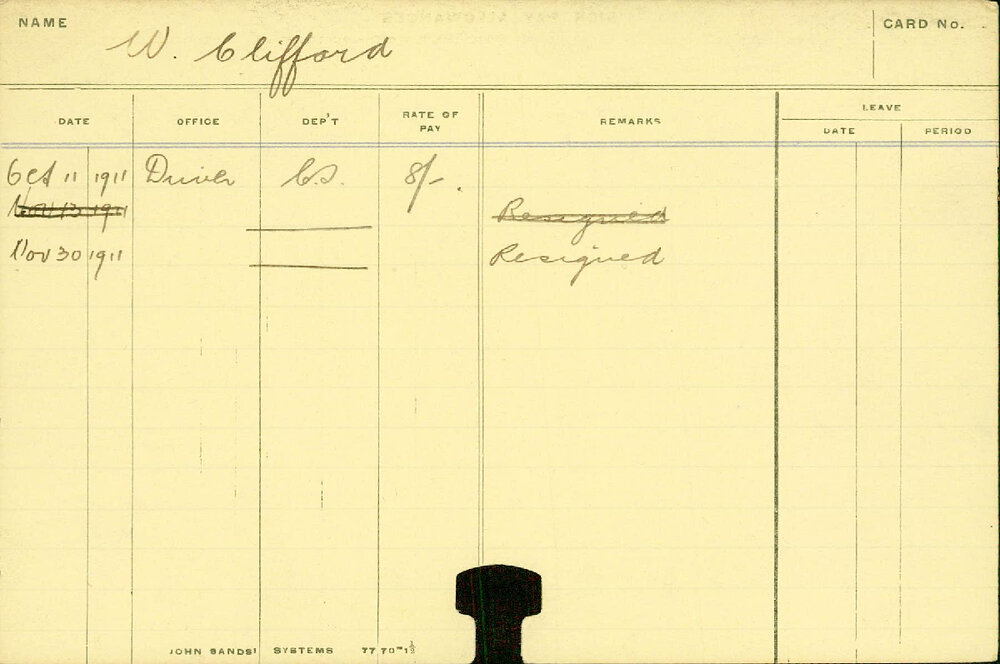 NAME W. Clifford CARD No.
DATE OFFICE DEP'T RATE OF PAY REMARKS LEAVE
DATE PERIOD
Oct 11 1911 Driver C.S. 8/-.
Nov 13 1911 Resigned
Nov 30 1911 Resigned
JOHN SANDS' SYSTEMS